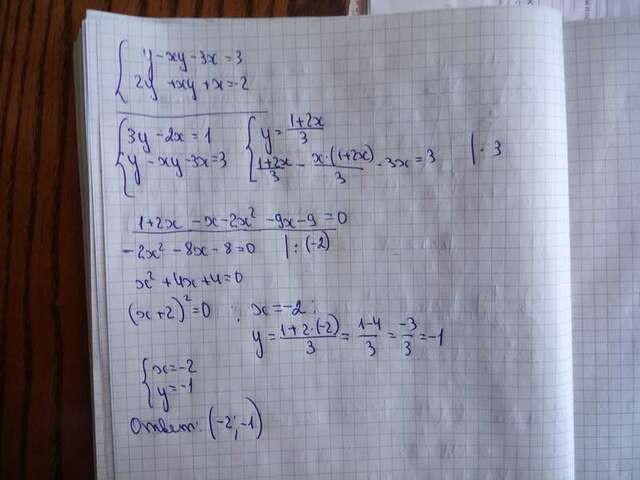 { y - xy - 3x = 3
2y + xy + x = -2
{ 3y - 2x = 1
y - xy - 3x = 3
{ y = (1+2x)/3
(1+2x)/3 - x·(1+2x)/3 - 3x = 3 | · 3
1+2x - x - 2x² - 9x - 9 = 0
-2x² - 8x - 8 = 0 | : (-2)
x² + 4x + 4 = 0
(x+2)² = 0 ; x = -2 ;
y = (1+2·(-2))/3 = (1-4)/3 = -3/3 = -1
{ x = -2
y = -1
Ответ: (-2; -1)